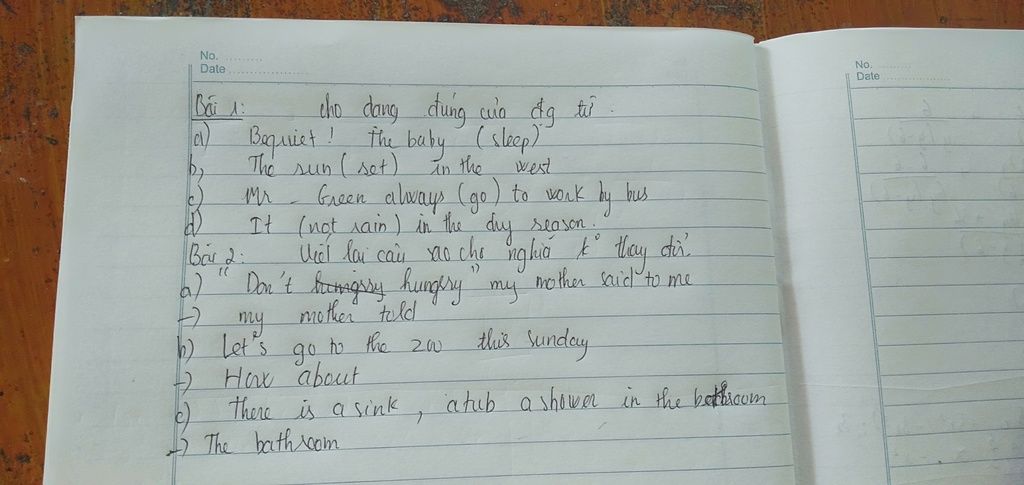 No. ..........
Date ....................
No. ..........
Date ..........
Bài 1: cho dạng đúng của đg từ.
a) Bequiet! The baby (sleep)
b, The sun (set) in the west
c) Mr - Green always (go) to work by bus
d) It (not rain) in the dry season.
Bài 2: Viết lại câu sao cho nghĩa k° thay đổi.
a) " Don't hungry " my mother said to me
-> my mother told
b) Let's go to the zoo this Sunday
-> How about
c) there is a sink, a tub a shower in the bathroom
-> The bathroom